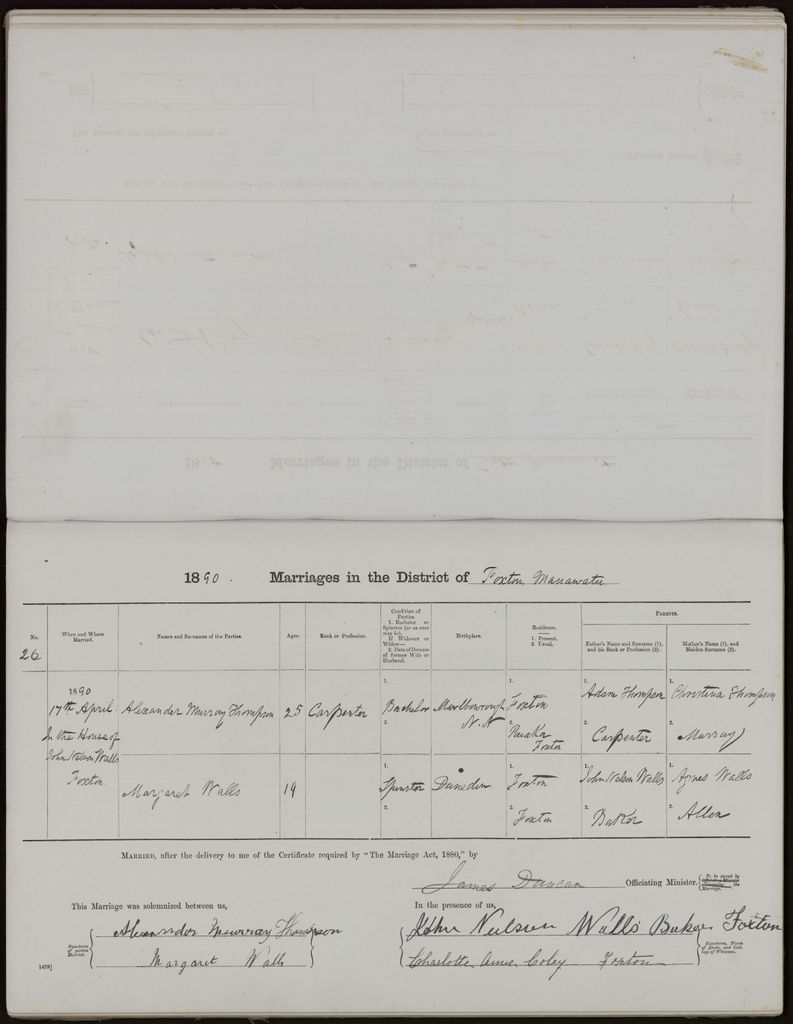 1890. Marriages in the District of Foxton Manawatu
No.
26
When and Where Married.
Names and Surnames of the Parties.
Ages.
Rank or Profession.
Condition of Parties.
1. Bachelor or Spinster (or as case may be).
If Widower or Widow—
2. Date of Decease of former Wife or Husband.
Birthplace.
Residence.
1. Present.
2. Usual.
PARENTS.
Father's Name and Surname (1), and his Rank or Profession (2).
Mother's Name (1), and Maiden Surname (2).
1890
17th April
In the House of
John Nelson Walls
Foxton.
Alexander Murray Thompson
25
Carpenter
1.
Bachelor
2.
Marlborough
N.N
1.
Foxton
2.
Foxton
1.
Adam Thompson
2.
Carpenter
1.
Christina Thompson
2.
Murray
Margaret Walls
19
1.
Spinster
2.
Dunedin
1.
Foxton
2.
Foxton
1.
John Nelson Walls
2.
Baker
1.
Agnes Walls
2.
Allen
MARRIED, after the delivery to me of the Certificate required by "The Marriage Act, 1880," by
James Duncan Officiating Minister.
This Marriage was solemnized between us,
Signatures of parties Married.
Alexander Murray Thompson
Margaret Walls
In the presence of us,
John Neilson Walls Baker Foxton
Charlotte Anne Coley Foxton
1478]